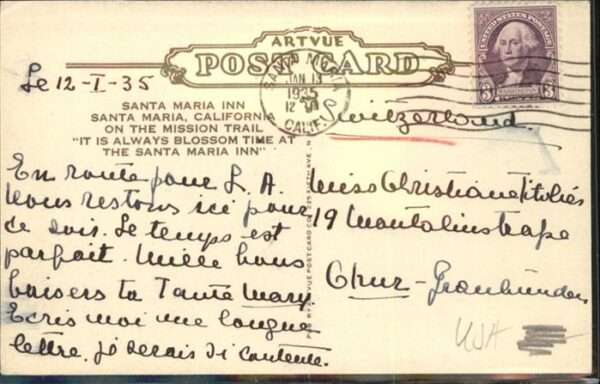 ARTVUE
POST CARD
Le 12-I-35
SANTA MARIA INN
SANTA MARIA, CALIFORNIA
ON THE MISSION TRAIL
"IT IS ALWAYS BLOSSOM TIME AT
THE SANTA MARIA INN"
SANTA MARIA
JAN 13
1935
CALIF.
UNITED STATES POSTAGE
3 3
Switzerland
En route pour L.A.
nous restons ici pour
ce soir. Le temps est
parfait. Mille bons
baisers ta Tante Mary
Ecris moi une longue
lettre. je serais si contente.
Miss Christiane
19 Montalinstrasse
Chur - Graubünden
USA